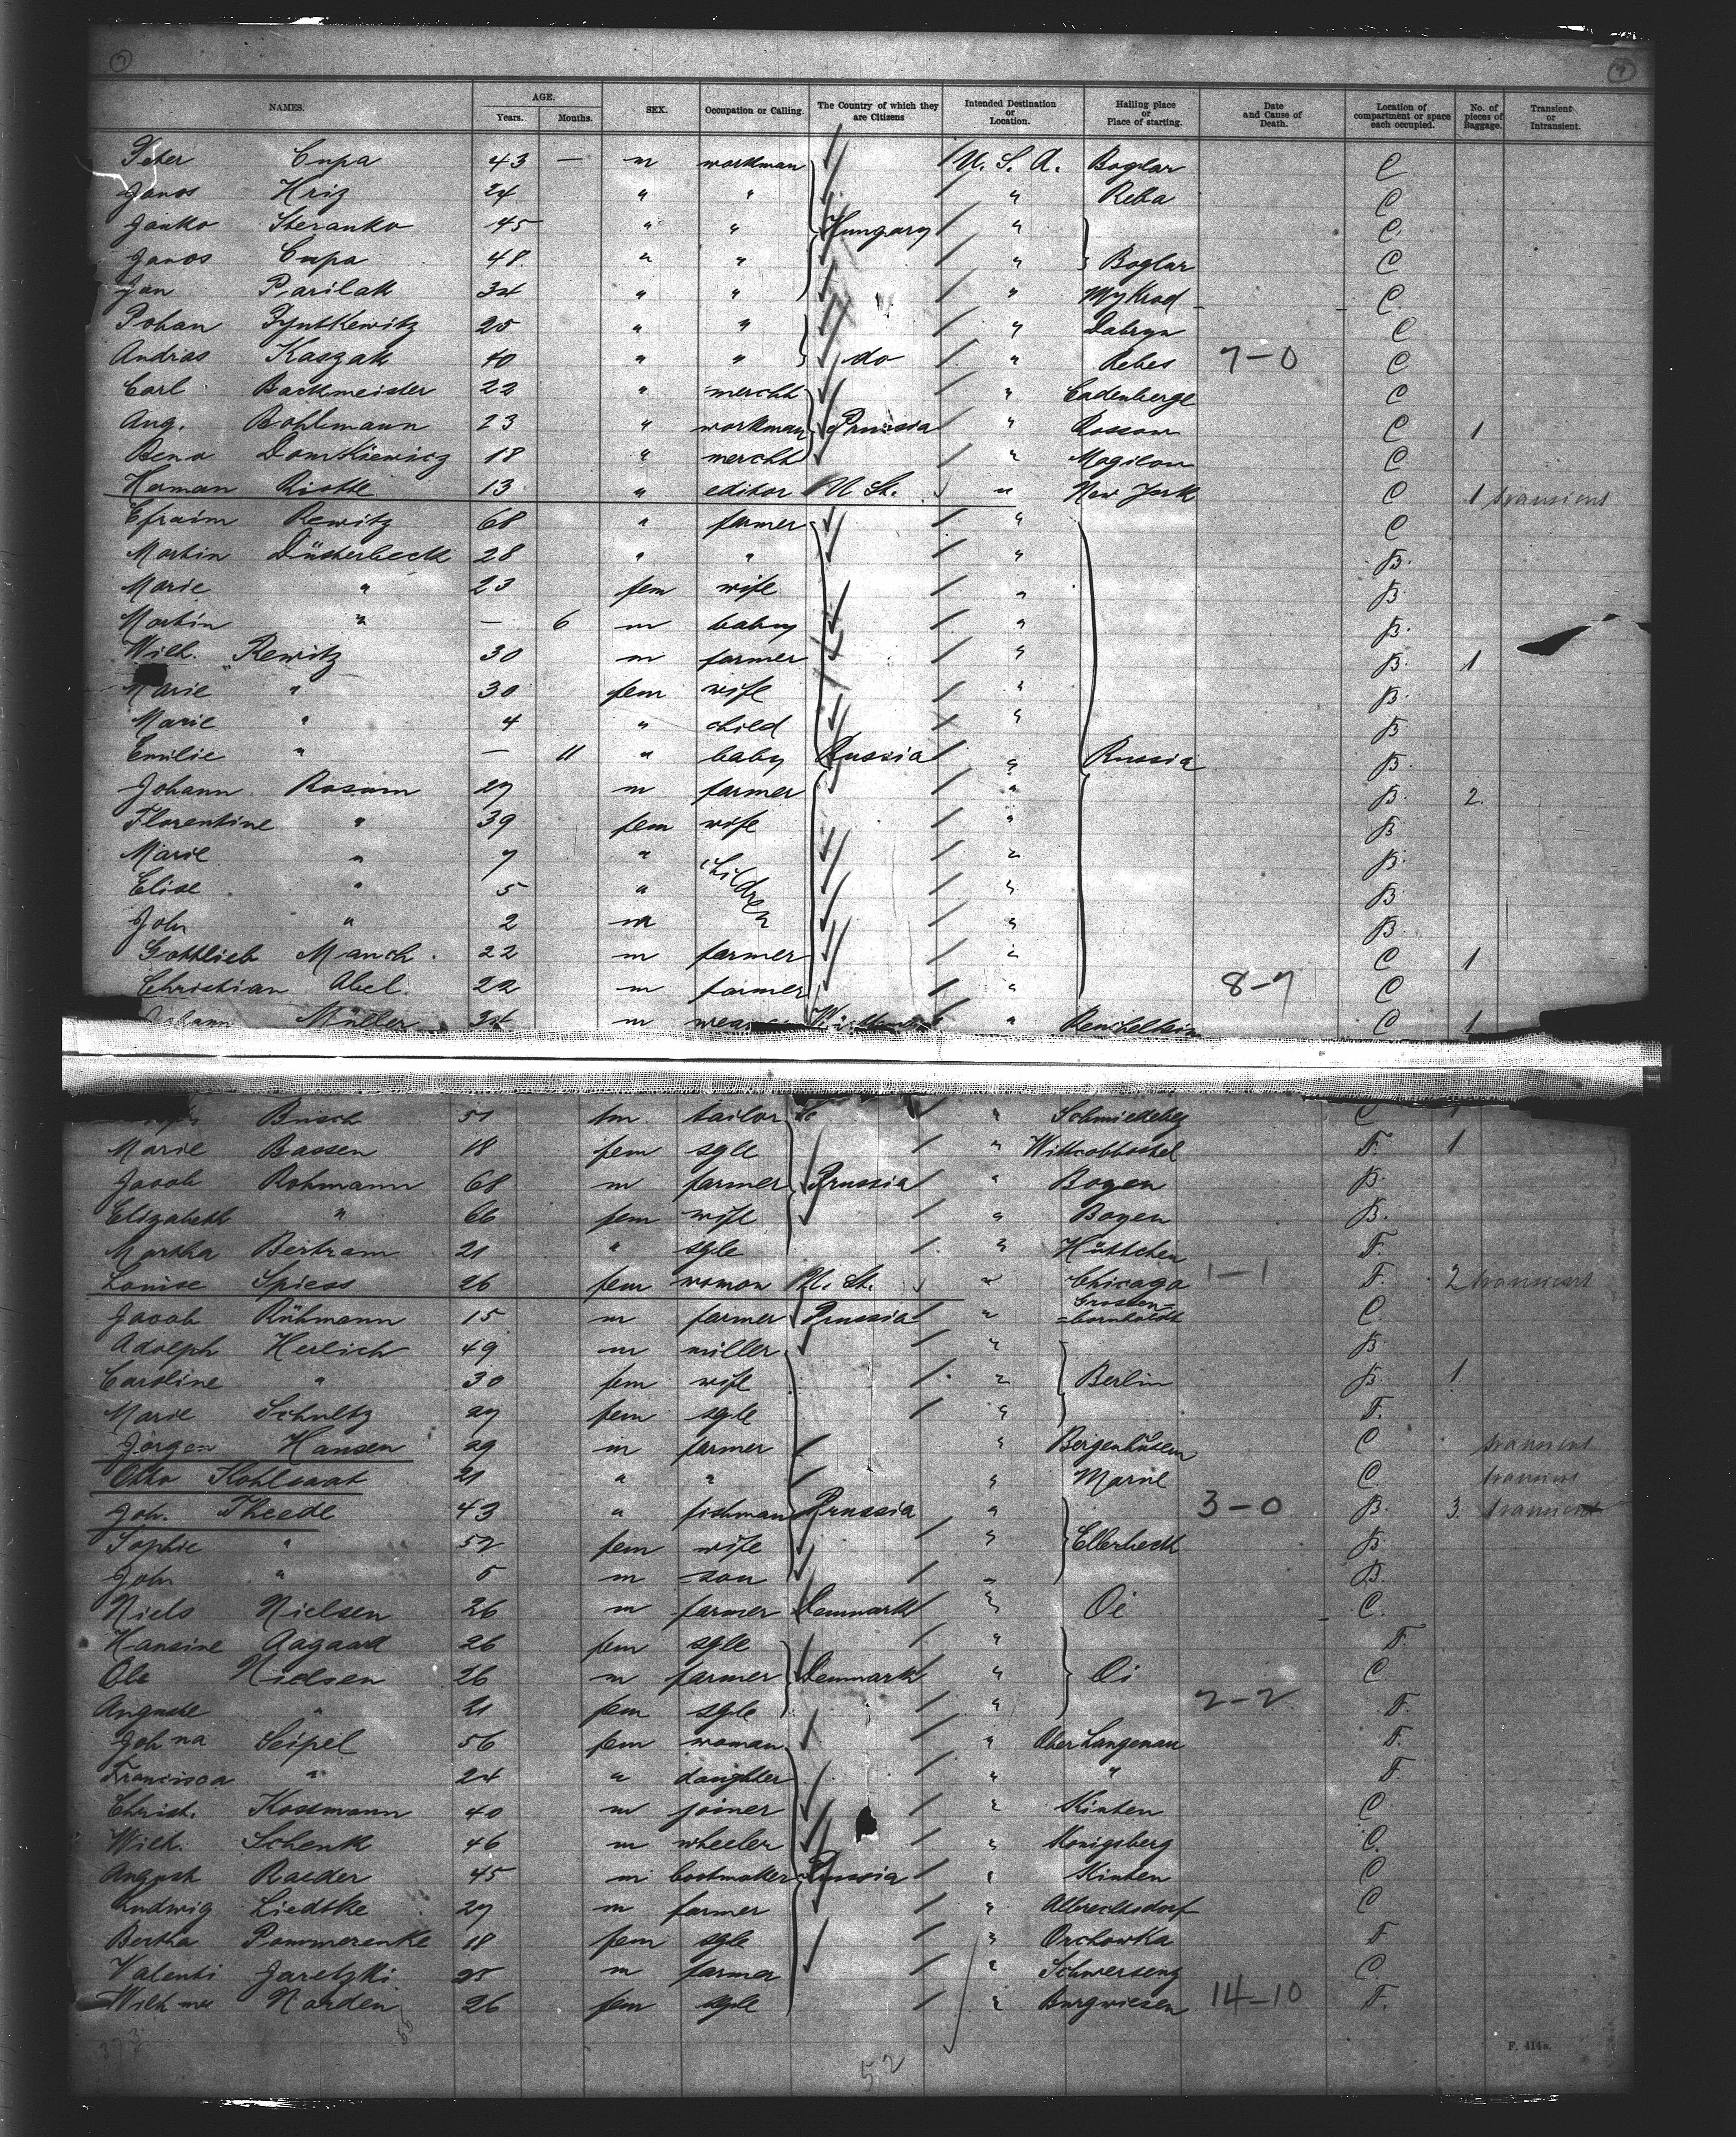 7 7
NAMES. AGE. Years. Months. SEX. Occupation or Calling. The Country of which they are Citizens Intended Destination or Location. Hailing place or Place of starting. Date and Cause of Death. Location of compartment or space each occupied. No. of pieces of Baggage. Transient or Intransient.
Peter Cupa 43 — m workman U. S. A. Boglar C
Janos Hriz 24 " " " Reba C
Janko Steranko 45 " " Hungary " C
Janos Cupa 48 " " " Boglar C
Jan Parilak 34 " " " C
Johan 25 " " " C
Andrias Kaszak 40 " " do " Rebes 7-0 C
Carl Backmeister 22 " mercht " Cadenberge C
Aug. Bohlmann 23 " workman Prussia " Rossow C 1
Beno Domkiewicz 18 " mercht " Mogilow C
Herman 13 " editor U St. " New York C 1 transient
Efraim Rewitz 68 " farmer " C
Martin Düsterbeck 28 " " " B.
Marie " 23 fem wife " B.
Martin " — 6 m baby " B.
Wilh. Rewitz 30 m farmer " B. 1
Marie " 30 fem wife " B.
Marie " 4 " child " B.
Emilie " — 11 " baby Russia " Russia B.
Johann Rosum 29 m farmer " B. 2.
Florentine " 39 fem wife " B.
Marie " 7 " children " B.
Elise " 5 " " B.
John " 2 m " B.
Gottlieb Manch 22 m farmer " C 1
Christian Abel. 22 m farmer " 8-7 C
Johann Müller 34 m " C 1
Busch 51 m tailor " C
Marie Bassen 18 fem sgle " F. 1
Jacob Rohmann 68 m farmer Prussia " Boyen B.
Elizabeth " 66 fem wife " Boyen B.
Martha Bertram 21 " sgle " Hüttchen F.
Louise Spiess 26 fem woman U. St. " Chicago 1-1 F. 2 transient
Jacob Rühmann 15 m farmer Prussia " Grossen=
=bornholdt C.
Adolph Herlich 49 m miller " B.
Caroline " 30 fem wife " Berlin B. 1
Marie Schultz 27 fem sgle " F.
Jörgen Hansen 29 m farmer " Bergenhusen C transient
Otto Kohlsaat 21 " " " Marne C transient
Joh. Theede 43 " fishman Prussia " 3-0 B. 3. transient
Sophie " 52 fem wife " Ellerbeck B.
John " 5 m son " B.
Niels Nielsen 26 m farmer Denmark " Oi C.
Hansine Aagaard 26 fem sgle " F.
Ole Nielsen 26 m farmer Denmark " Oi C.
Auguste " 21 fem sgle " 2-2 F.
Johna Seipel 56 fem woman " Ober Langenau F.
Francisca " 24 " daughter " " F.
Christ. Kossmann 40 m joiner " Kinten C
Wilh. Schenk 46 m wheeler " Konigsberg C.
August Raeder 45 m bootmaker Prussia " Kinten C
Ludwig Liedtke 27 m farmer " Albrechtsdorf C
Bertha Pommerenke 18 fem sgle " Orchowka F
Valenti Jaretzki 25 m farmer " Schwersenz C
Wilh mne Norden 26 fem sgle " Burgwiesen 14-10 F.
373 52 F. 414a.